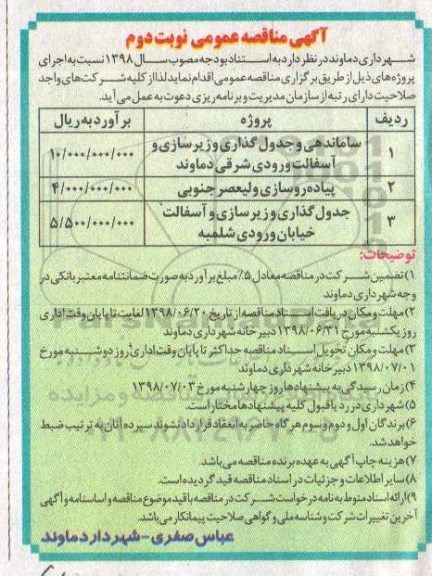 آگهی مناقصه عمومی نوبت دوم
شهرداری دماوند در نظر دارد به استناد بودجه مصوب سال ۱۳۹۸ نسبت به اجرای
پروژه های ذیل از طریق برگزاری مناقصه عمومی اقدام نماید لذا از کلیه شرکت های واجد
صلاحیت دارای رتبه از سازمان مدیریت و برنامه ریزی دعوت به عمل می آید.
ردیف پروژه برآورد به ریال
۱ ساماندهی و جدول گذاری و زیر سازی و آسفالت ورودی شرقی دماوند ۱۰/۰۰۰/۰۰۰/۰۰۰
۲ پیاده رو سازی ولیعصر جنوبی ۴/۰۰۰/۰۰۰/۰۰۰
۳ جدول گذاری و زیر سازی و آسفالت خیابان ورودی شلمبه ۵/۵۰۰/۰۰۰/۰۰۰
توضیحات:
۱) تضمین شرکت در مناقصه معادل ۵٪ مبلغ برآورد به صورت ضمانتنامه معتبر بانکی در
وجه شهرداری دماوند
۲) مهلت و مکان دریافت اسناد مناقصه از تاریخ ۱۳۹۸/۰۶/۲۰ لغایت تا پایان وقت اداری
روز یکشنبه مورخ ۱۳۹۸/۰۶/۳۱ دبیرخانه شهرداری دماوند
۳) مهلت و مکان تحویل اسناد مناقصه حداکثر تا پایان وقت اداری روز دوشنبه مورخ
۱۳۹۸/۰۷/۰۱ دبیرخانه شهرداری دماوند
۴) زمان رسیدگی به پیشنهادها روز چهارشنبه مورخ ۱۳۹۸/۰۷/۰۳
۵) شهرداری در رد یا قبول کلیه پیشنهادها مختار است.
۶) برندگان اول و دوم و سوم هرگاه حاضر به انعقاد قرارداد نشوند سپرده آنان به ترتیب ضبط
خواهد شد.
۷) هزینه چاپ آگهی به عهده برنده مناقصه می باشد.
۸) سایر اطلاعات و جزئیات در اسناد مناقصه قید گردیده است.
۹) ارائه اسناد منوط به نامه درخواست شرکت در مناقصه با قید موضوع مناقصه و اساسنامه و آگهی
آخرین تغییرات شرکت و شناسه ملی و گواهی صلاحیت پیمانکار می باشد.
عباس صفری - شهردار دماوند